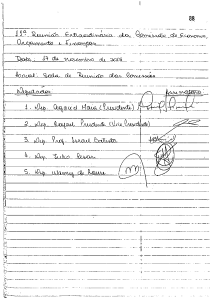 88
11ª Reunião Extraordinária da Comissão de Economia,
Orçamento e Finanças
Data: 27 de novembro de
Local: Sala de Reunião das Comissões
Deputados Assinatura
1. Dep. (Presidente)
2. Dep. Rafael Prudente (Vice Presidente)
3. Dep. Prof. Israel Batista
4. Dep. Julio Cesar
5. Dep. Wasny de Roure